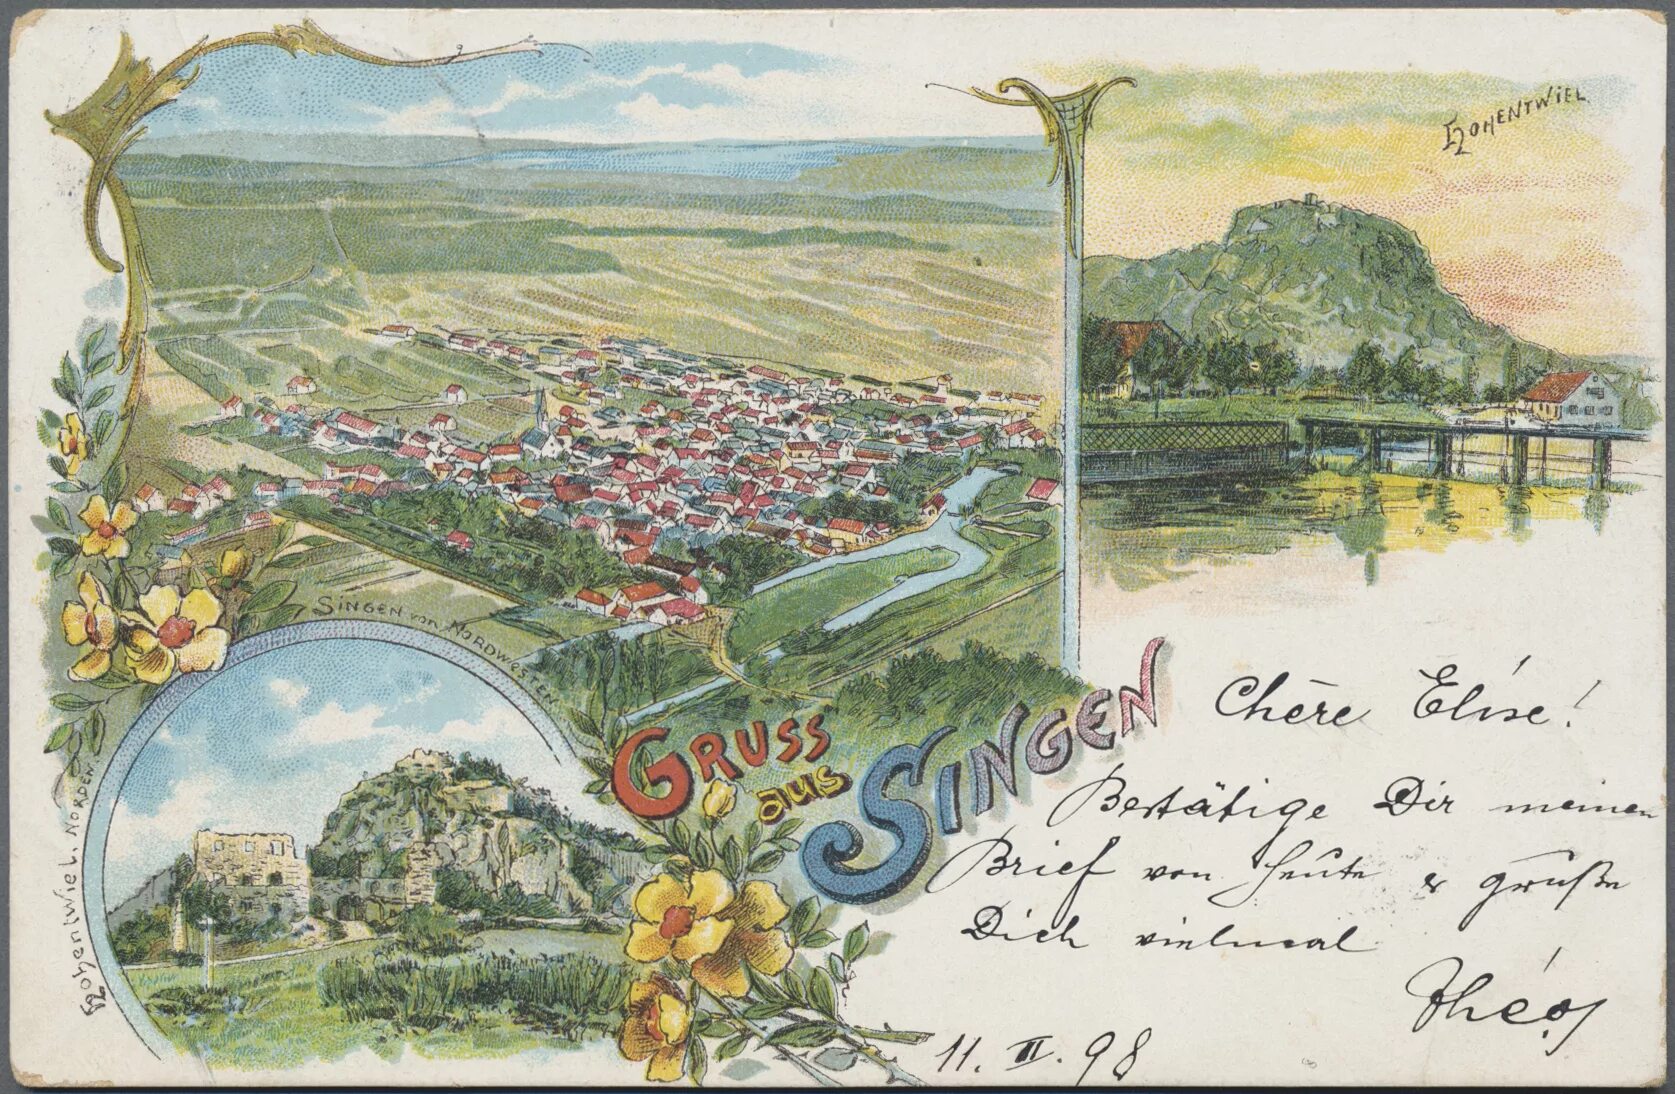 HOHENTWIEL
SINGEN von NORDWESTEN.
HohentWiel. NORDEN.
GRUSS
aus
SINGEN
Chère Elise!
Bestätige Dir meinen
Brief von heute & grüße
Dich vielmal
Théo
11. II. 98